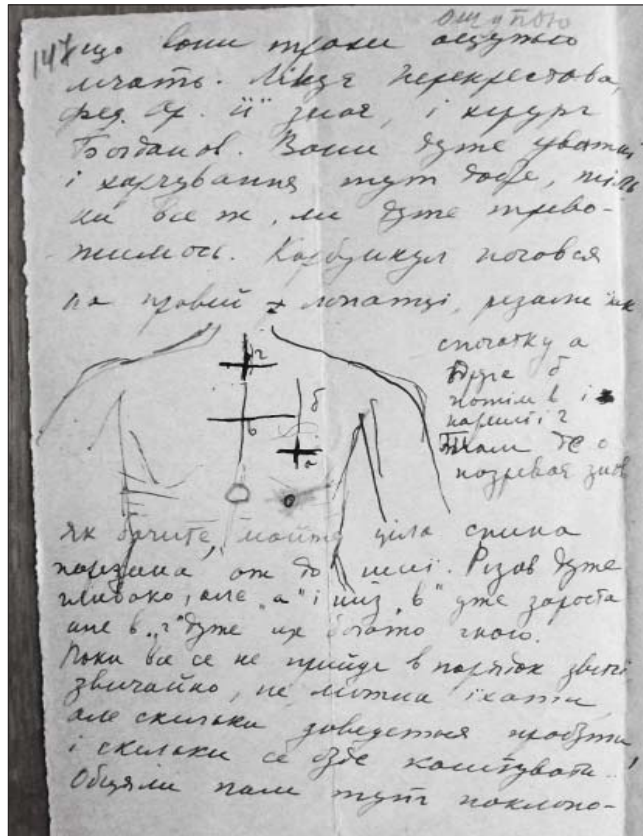 ощупою
147 що вони трохи ощупью
лічать. Лікує Перехрестова,
Фед. Ор. її знає, і хирург
Богданов. Вони дуже уважні
і харчування тут добре, тіль
ки все ж, ми дуже триво-
жимось. Карбункул почався
на правій лопатці, різали так
спочатку а
друге б
потім в і
нарешті г
Там де о
назрівая знов
г
б
в
а
о
Як бачите, майже ціла спина
порізана, аж до шиї. Різав дуже
глибоко, але „а" і низ „в" уже зароста
але в „г" дуже ще богато гною.
Поки все се не прийде в порядок звісті
звичайно, не можна їхати,
але скільки доведеться пробути
і скільки се буде коштувати..!
Обіцяли нам тут поклопо-